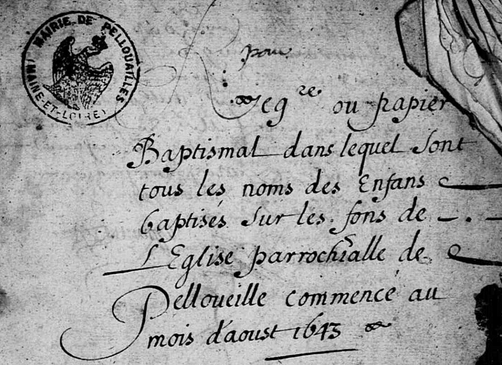 MAIRIE DE PELLOUAILLES
(MAINE-ET-LOIRE)
pour
Regre ou papier
Baptismal dans lequel sont
tous les noms des Enfans
baptisés sur les fons de
L'Eglise parrochialle de
Pelloueille commencé au
mois d'aoust 1643